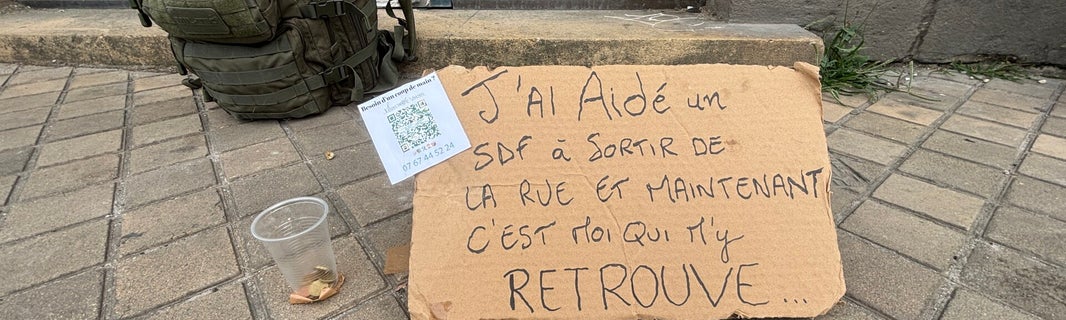 Besoin d'un coup de main ?
07 67 44 52 24
J'AI AIDÉ un
SDF à SORTIR DE
LA RUE ET MAINTENANT
C'EST MOI QUI M'y
RETROUVE...